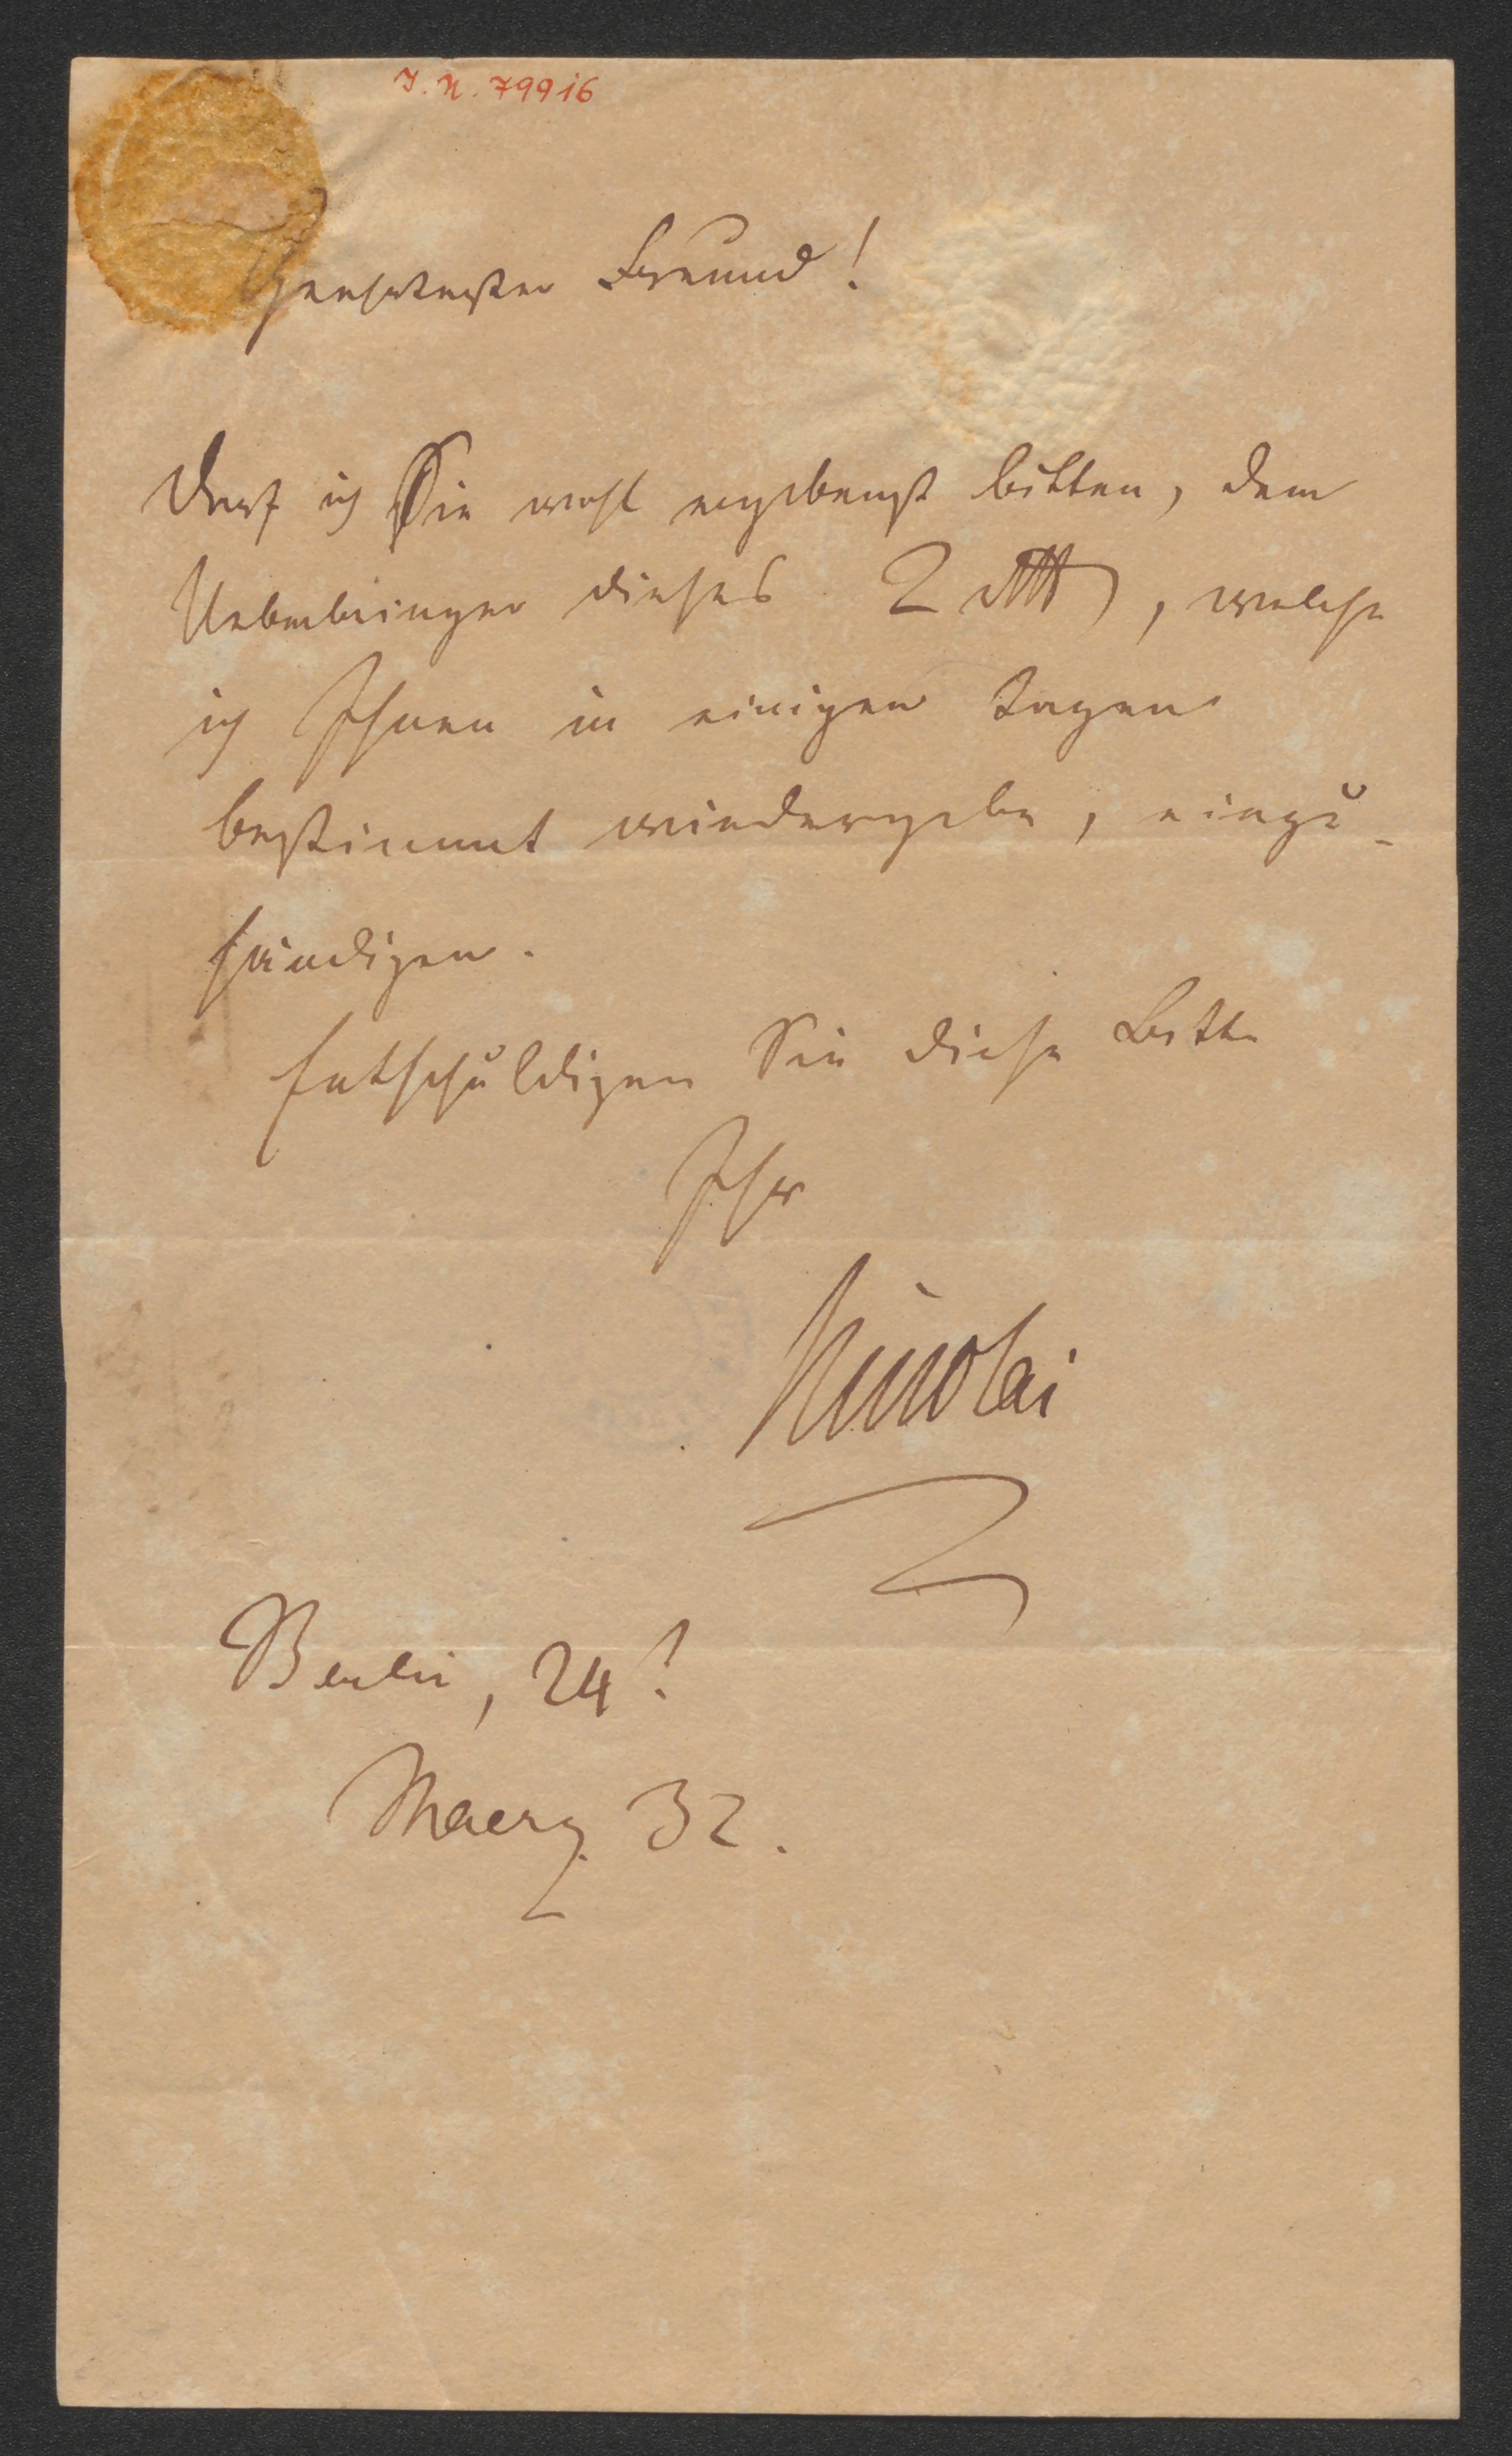 I. N. 79916
Geehrtester Freund!
Darf ich Sie wohl ergebenst bitten, dem
Ueberbringer dieses 2 , welche
ich Ihnen in einigen Tagen
bestimmt wiedergebe, einzu-
händigen.
Entschuldigen Sie diese Bitte
Ihr
Nicolai
Berlin, 24t
Maerz 32.